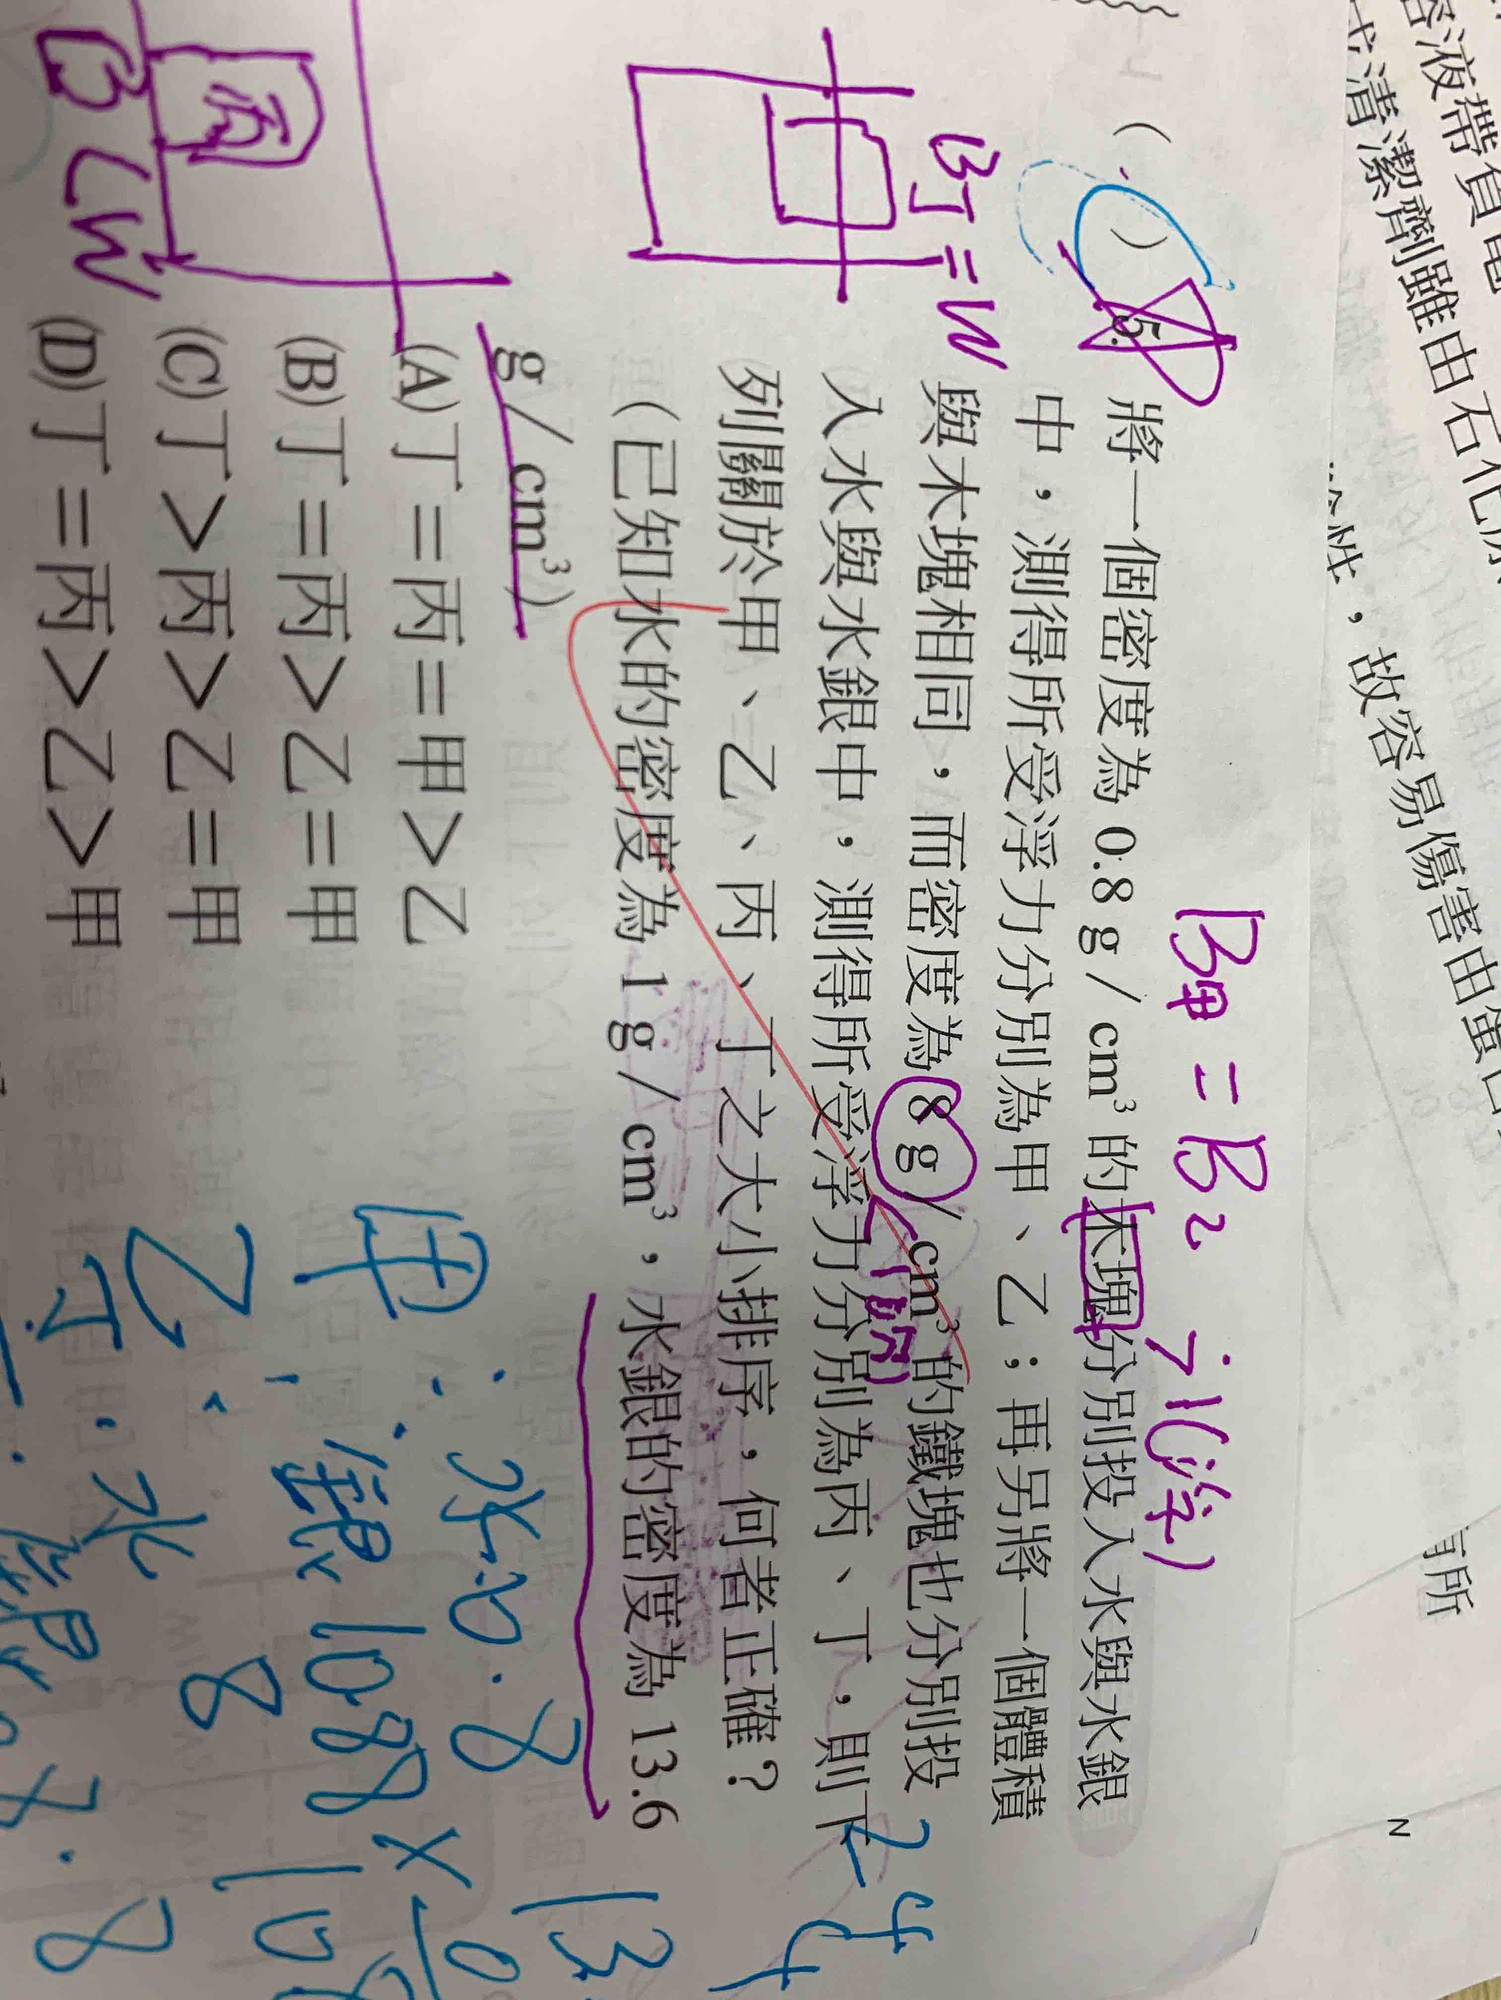 容液帶負電
式清潔劑雖由石化原
性，故容易傷害由蛋白
有所
N
B甲＝B乙
>1(浮)
( ) 5. 將一個密度為 0.8 g / cm³ 的木塊分別投入水與水銀
中，測得所受浮力分別為甲、乙；再另將一個體積
與木塊相同，而密度為 8 g / cm³ 的鐵塊也分別投
入水與水銀中，測得所受浮力分別為丙、丁，則下
列關於甲、乙、丙、丁之大小排序，何者正確？
(已知水的密度為 1 g / cm³，水銀的密度為 13.6
g / cm³)
(A)丁＝丙＝甲＞乙
(B)丁＝丙＞乙＝甲
(C)丁＞丙＞乙＝甲
(D)丁＝丙＞乙＞甲
B丁＝W
丙
B<W
甲：水0.8
銀1088
乙
水 8